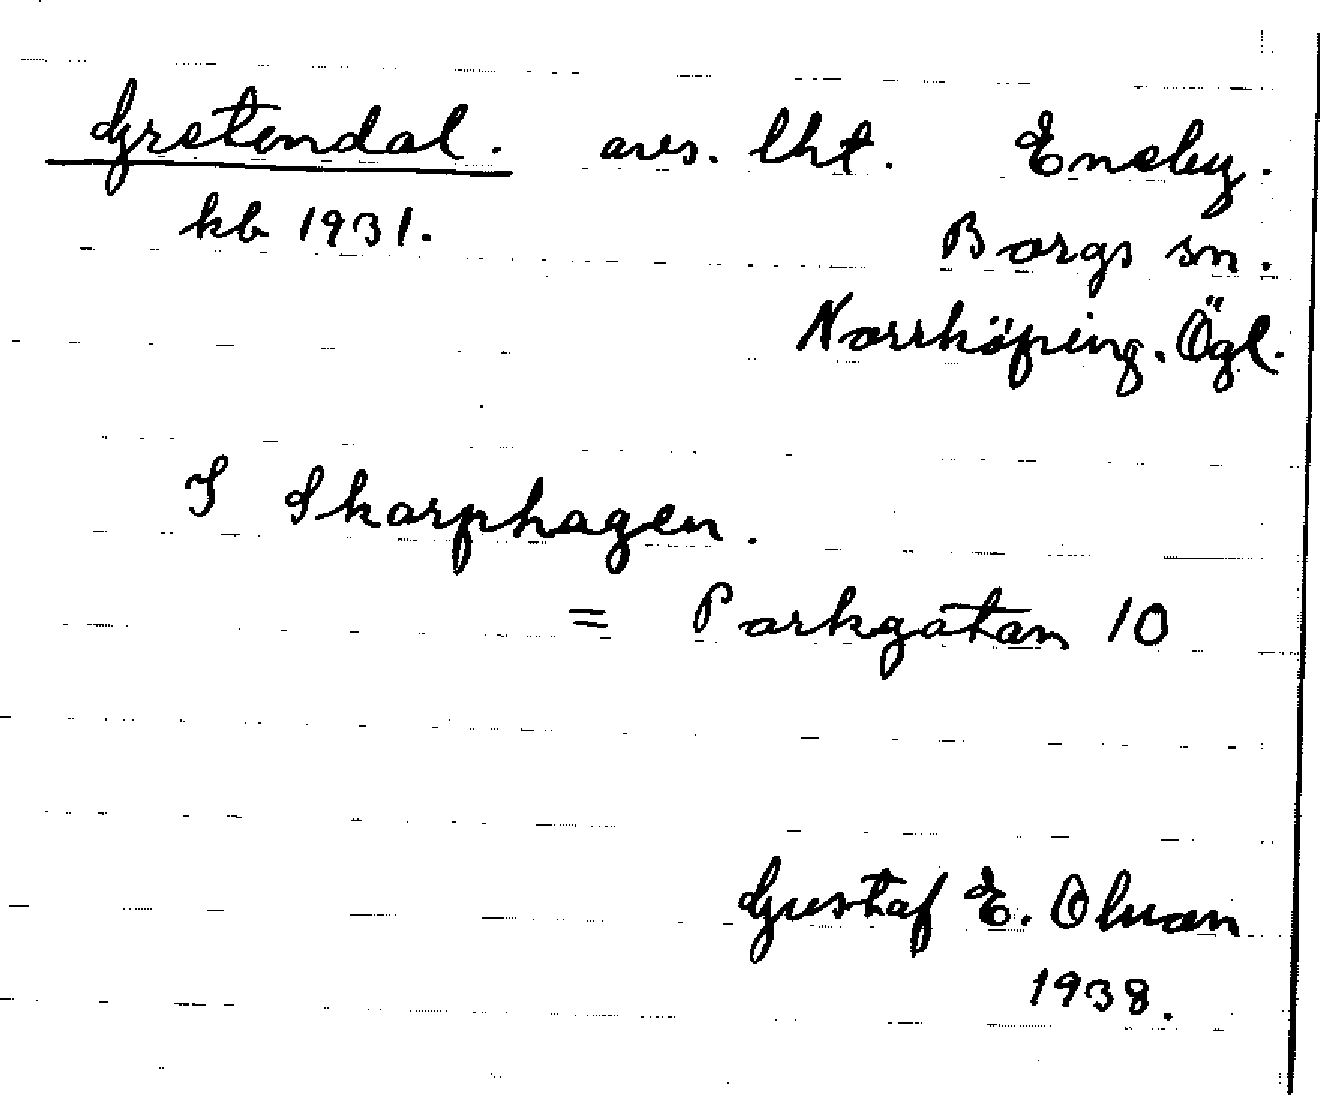 Gretendal. avs. lht. Eneby.
kb 1931. Borgs sn.
Norrköping. Ögl.
I Skarphagen.
= Parkgatan 10
Gustaf E. Olsson
1938.